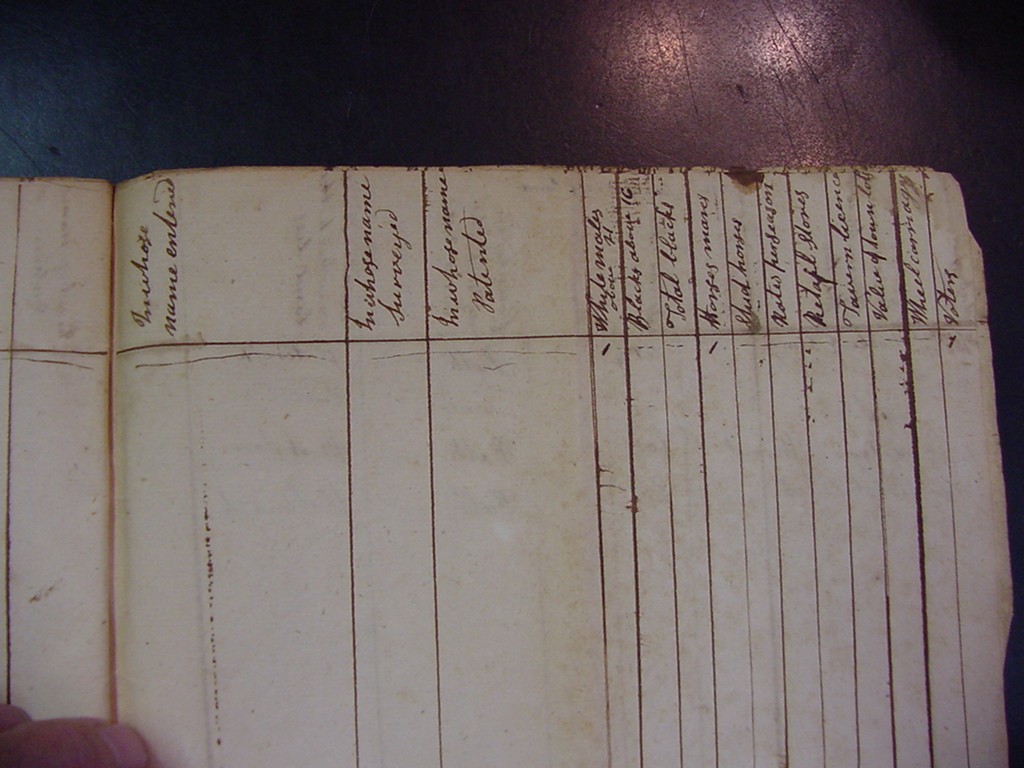 In whose
name entered
In whose name
Surveyed
In whose name
Patented
White males
abov 21
Blacks abov 16
Total blacks
Horses mares
Stud horses
Rates per season
Retail Stores
Tavern licence
Value of town lott
Wheel carriag
Voters